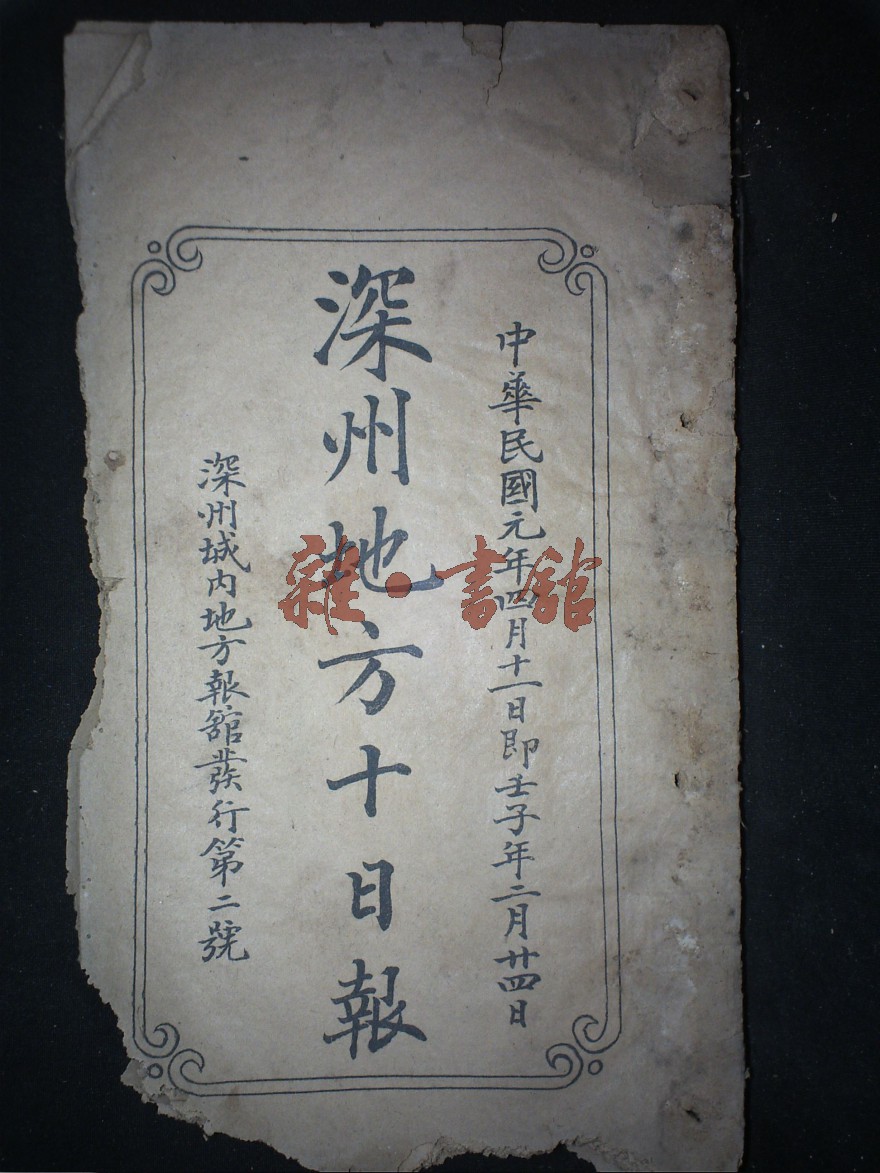 中華民國元年四月十一日即壬子年二月廿四日
深州地方十日報
深州城内地方報舘發行第二號
雜·書舘